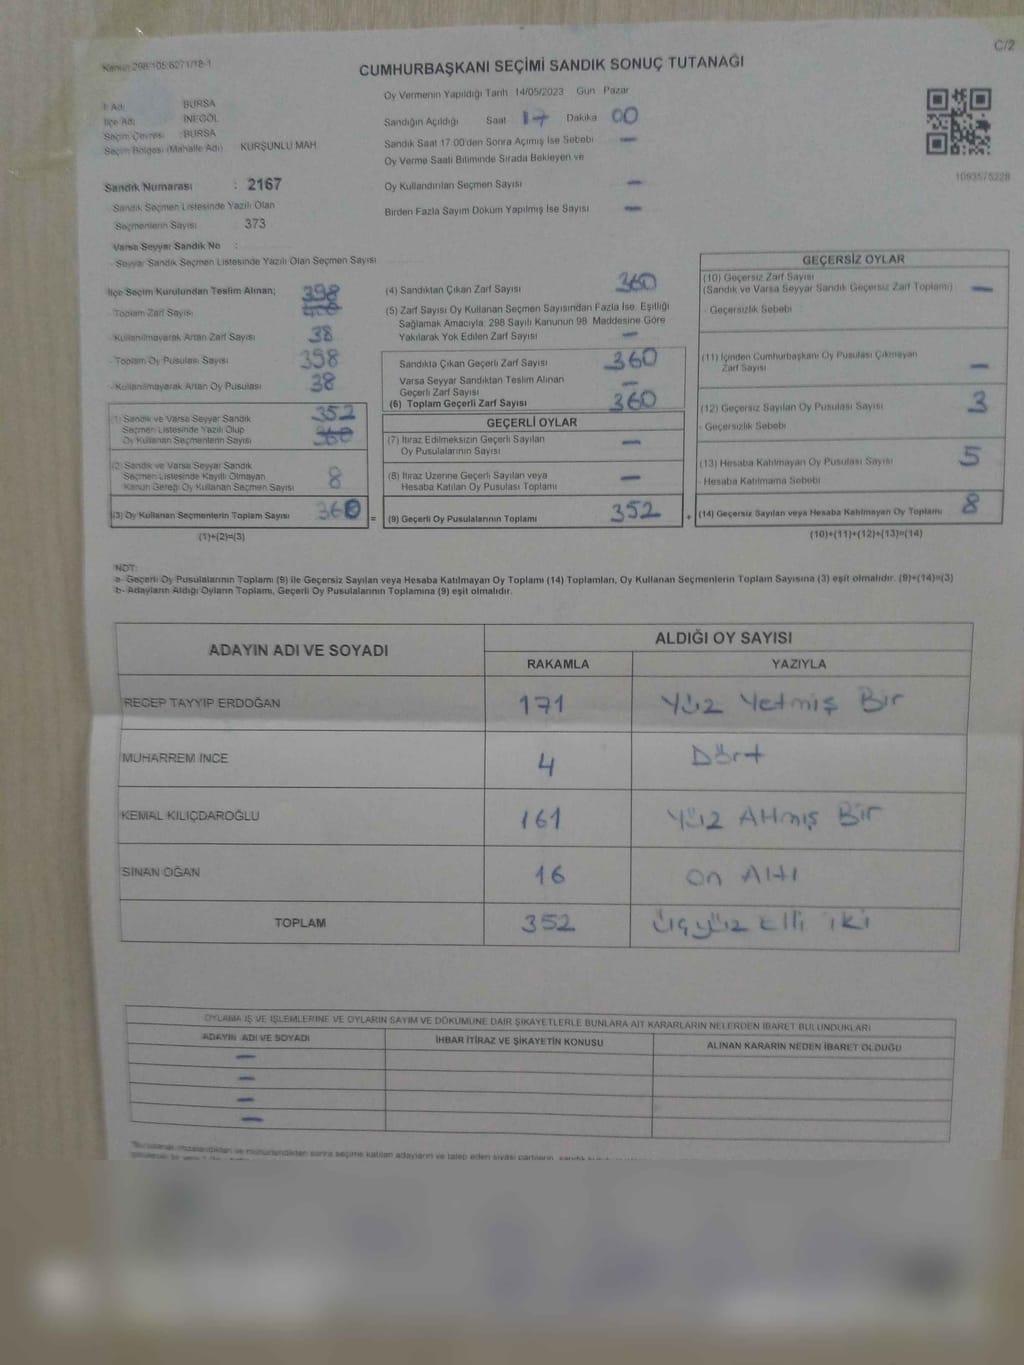 C/2
Kanun 298/105;6271/18-1
CUMHURBAŞKANI SEÇİMİ SANDIK SONUÇ TUTANAĞI
İl Adı BURSA
İlçe Adı İNEGÖL
Seçim Çevresi BURSA
Seçim Bölgesi (Mahalle Adı) KURŞUNLU MAH
Sandık Numarası : 2167
Sandık Seçmen Listesinde Yazılı Olan
Seçmenlerin Sayısı 373
Varsa Seyyar Sandık No :
Seyyar Sandık Seçmen Listesinde Yazılı Olan Seçmen Sayısı
Oy Vermenin Yapıldığı Tarih 14/05/2023 Gün Pazar
Sandığın Açıldığı Saat 17 Dakika 00
Sandık Saat 17.00'den Sonra Açımış İse Sebebi —
Oy Verme Saati Bitiminde Sırada Bekleyen ve
Oy Kullandırılan Seçmen Sayısı —
Birden Fazla Sayım Döküm Yapılmış İse Sayısı —
1093575228
İlçe Seçim Kurulundan Teslim Alınan; 398
Toplam Zarf Sayısı
Kullanılmayarak Artan Zarf Sayısı 38
Toplam Oy Pusulası Sayısı 398
Kullanılmayarak Artan Oy Pusulası 38
(1) Sandık ve Varsa Seyyar Sandık 352
Seçmen Listesinde Yazılı Olup
Oy Kullanan Seçmenlerin Sayısı 360
(2) Sandık ve Varsa Seyyar Sandık
Seçmen Listesinde Kayıtlı Olmayan 8
Kanun Gereği Oy Kullanan Seçmen Sayısı
(3) Oy Kullanan Seçmenlerin Toplam Sayısı 360 =
(1)+(2)=(3)
(4) Sandıktan Çıkan Zarf Sayısı 360
(5) Zarf Sayısı Oy Kullanan Seçmen Sayısından Fazla İse, Eşitliği
Sağlamak Amacıyla, 298 Sayılı Kanunun 98. Maddesine Göre
Yakılarak Yok Edilen Zarf Sayısı —
Sandıkta Çıkan Geçerli Zarf Sayısı 360
Varsa Seyyar Sandıktan Teslim Alınan
Geçerli Zarf Sayısı —
(6) Toplam Geçerli Zarf Sayısı 360
GEÇERLİ OYLAR
(7) İtiraz Edilmeksizin Geçerli Sayılan
Oy Pusulalarının Sayısı —
(8) İtiraz Üzerine Geçerli Sayılan veya
Hesaba Katılan Oy Pusulası Toplamı —
(9) Geçerli Oy Pusulalarının Toplamı 352 +
GEÇERSİZ OYLAR
(10) Geçersiz Zarf Sayısı
(Sandık ve Varsa Seyyar Sandık Geçersiz Zarf Toplamı) —
- Geçersizlik Sebebi
(11) İçinden Cumhurbaşkanı Oy Pusulası Çıkmayan
Zarf Sayısı —
(12) Geçersiz Sayılan Oy Pusulası Sayısı 3
- Geçersizlik Sebebi
(13) Hesaba Katılmayan Oy Pusulası Sayısı 5
- Hesaba Katılmama Sebebi
(14) Geçersiz Sayılan veya Hesaba Katılmayan Oy Toplamı 8
(10)+(11)+(12)+(13)=(14)
NOT:
a- Geçerli Oy Pusulalarının Toplamı (9) ile Geçersiz Sayılan veya Hesaba Katılmayan Oy Toplamı (14) Toplamları, Oy Kullanan Seçmenlerin Toplam Sayısına (3) eşit olmalıdır. (9)+(14)=(3)
b- Adayların Aldığı Oyların Toplamı, Geçerli Oy Pusulalarının Toplamına (9) eşit olmalıdır.
ADAYIN ADI VE SOYADI ALDIĞI OY SAYISI
RAKAMLA YAZIYLA
RECEP TAYYİP ERDOĞAN 171 Yüz Yetmiş Bir
MUHARREM İNCE 4 Dört
KEMAL KILIÇDAROĞLU 161 Yüz Altmış Bir
SİNAN OĞAN 16 On Altı
TOPLAM 352 Üçyüz Elli iki
OYLAMA İŞ VE İŞLEMLERİNE VE OYLARIN SAYIM VE DÖKÜMÜNE DAİR ŞİKAYETLERLE BUNLARA AİT KARARLARIN NELERDEN İBARET BULUNDUKLARI
ADAYIN ADI VE SOYADI İHBAR İTİRAZ VE ŞİKAYETİN KONUSU ALINAN KARARIN NEDEN İBARET OLDUĞU
—
—
—
—